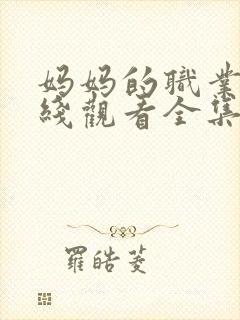 妈妈的職業
綫觀看全集
羅皓菱